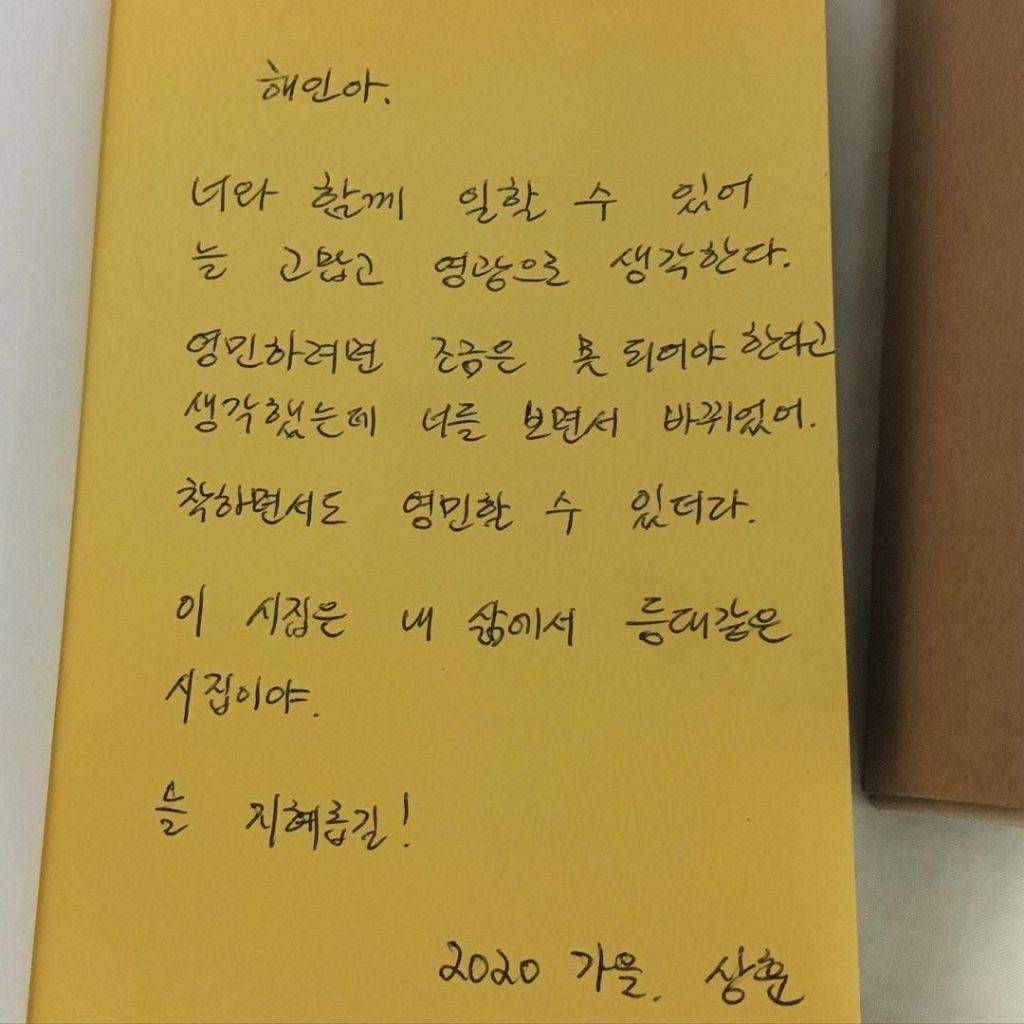 해인아.
너와 함께 일할 수 있어
늘 고맙고 영광으로 생각한다.
영민하려면 조금은 못 되어야 한다고
생각했는데 너를 보면서 바뀌었어.
착하면서도 영민할 수 있더라.
이 시집은 내 삶에서 등대같은
시집이야.
늘 지혜롭길!
2020 가을. 상훈